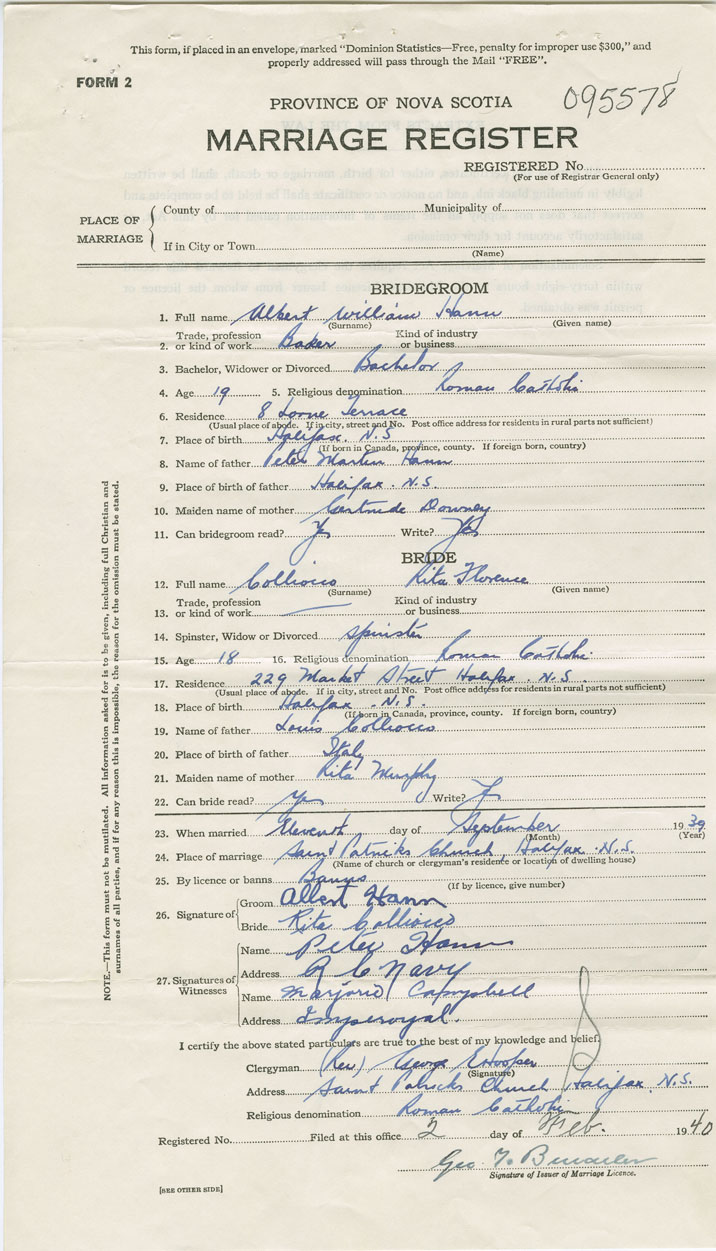 This form, if placed in an envelope, marked "Dominion Statistics—Free, penalty for improper use $300," and
properly addressed will pass through the Mail "FREE".
FORM 2
PROVINCE OF NOVA SCOTIA
095578
MARRIAGE REGISTER
REGISTERED No.
(For use of Registrar General only)
PLACE OF MARRIAGE
County of
Municipality of
If in City or Town
(Name)
BRIDEGROOM
1. Full name Albert William Hann
(Surname) (Given name)
2. Trade, profession or kind of work Baker Kind of industry or business
3. Bachelor, Widower or Divorced Bachelor
4. Age 19 5. Religious denomination Roman Catholic
6. Residence 8 Lorne Terrace
(Usual place of abode. If in city, street and No. Post office address for residents in rural parts not sufficient)
7. Place of birth Halifax. N.S
(If born in Canada, province, county. If foreign born, country)
8. Name of father Peter Martin Hann
9. Place of birth of father Halifax. N.S.
10. Maiden name of mother Gertrude Downey
11. Can bridegroom read? Yes Write? Yes
BRIDE
12. Full name Colliocco Rita Florence
(Surname) (Given name)
13. Trade, profession or kind of work — Kind of industry or business
14. Spinster, Widow or Divorced Spinster
15. Age 18 16. Religious denomination Roman Catholic
17. Residence 229 Market Street Halifax. N.S.
(Usual place of abode. If in city, street and No. Post office address for residents in rural parts not sufficient)
18. Place of birth Halifax. N.S.
(If born in Canada, province, county. If foreign born, country)
19. Name of father Louis Colliocco
20. Place of birth of father Italy
21. Maiden name of mother Rita Murphy
22. Can bride read? Yes Write? Yes
23. When married Eleventh day of September 1939
(Month) (Year)
24. Place of marriage Saint Patricks Church, Halifax. N.S.
(Name of church or clergyman's residence or location of dwelling house)
25. By licence or banns Banns
(If by licence, give number)
26. Signature of
Groom Albert Hann
Bride Rita Colliocco
27. Signatures of Witnesses
Name Peter Hann
Address R C Navy
Name Marjorie Campbell
Address Imperoyal.
I certify the above stated particulars are true to the best of my knowledge and belief.
Clergyman (Rev) George E Hooper
(Signature)
Address Saint Patricks Church Halifax, N.S.
Religious denomination Roman Catholic
Registered No. Filed at this office 2 day of Feb. 1940
Geo
Signature of Issuer of Marriage Licence.
[SEE OTHER SIDE]
NOTE.—This form must not be mutilated. All information asked for is to be given, including full Christian and
surnames of all parties, and if for any reason this is impossible, the reason for the omission must be stated.